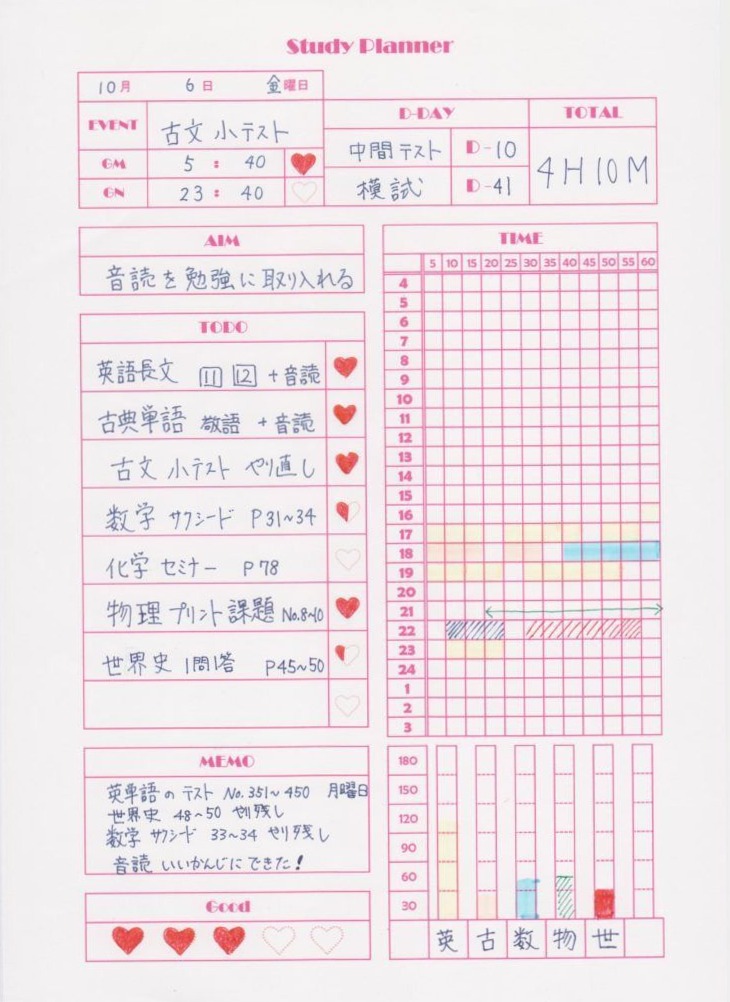 Study Planner
10月 6日 金曜日
EVENT 古文 小テスト
GM 5 : 40
GN 23 : 40
D-DAY
中間テスト D-10
模試 D-41
TOTAL
4H10M
AIM
音読を勉強に取り入れる
TODO
英語長文 11 12 +音読
古典単語 敬語 +音読
古文 小テスト やり直し
数学 サクシード P31~34
化学 セミナー P78
物理プリント課題 No.8~10
世界史 1問1答 P45~50
MEMO
英単語の テスト No.351~450 月曜日
世界史 48~50 やり残し
数学 サクシード 33~34 やり残し
音読 いいかんじにできた!
Good
TIME
5 10 15 20 25 30 35 40 45 50 55 60
4
5
6
7
8
9
10
11
12
13
14
15
16
17
18
19
20
21
22
23
24
1
2
3
180
150
120
90
60
30
英 古 数 物 世